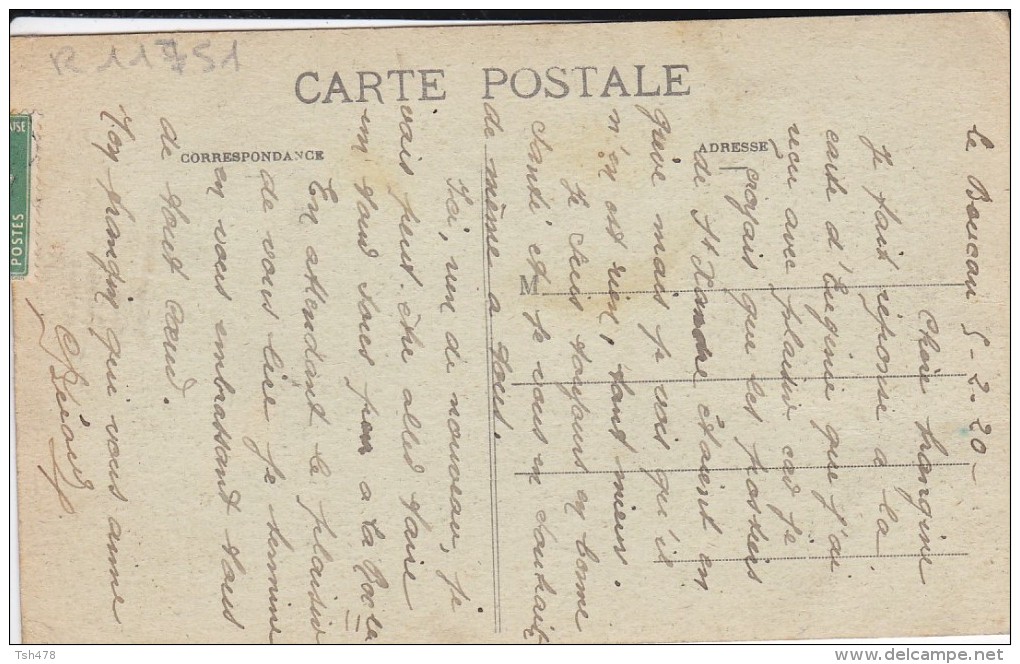 R 11751
CARTE POSTALE
CORRESPONDANCE
ADRESSE
M
POSTES
le Boucau 5-2-20-
Chère frangine
Je fais réponse à la
carte d'Eugénie que j'ai
reçu avec plaisir car je
croyais que les postiers
de St étaient en
grève mais je vois qu'il
n'en est rien, tant mieux.
Je suis toujours en bonne
santé et je vous en souhaite
de même a tous.
Ici, rien de nouveau, je
vais peut-être aller faire
un tour sous peu a la
En attendant le plaisir
de vous lire je termine
en vous embrassant tous
de tout cœur.
Ton frangin qui vous aime
Tsh478
www.delcampe.net